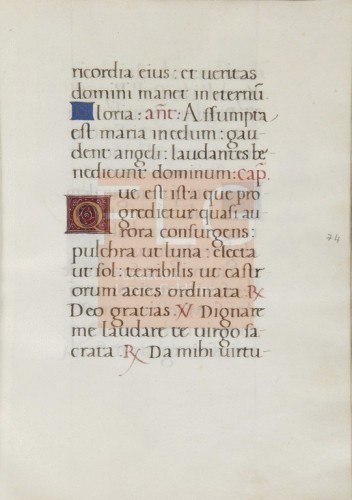 ricordia eius: et ueritas
domini manet in eternū
Gloria: añt: Assumpta
est maria incelum: gau
dent angeli: laudantes be
nedicunt dominum: cap̄
Que est ista que pro
gredictur quasi au
rora consurgens:
pulchra ut luna: electa
ut sol: terribilis ut castr
orum acies ordinata ℟
Deo gratias. ℣ Dignare
me laudare te uirgo sa
crata. ℟ Da mihi uirtu-
74